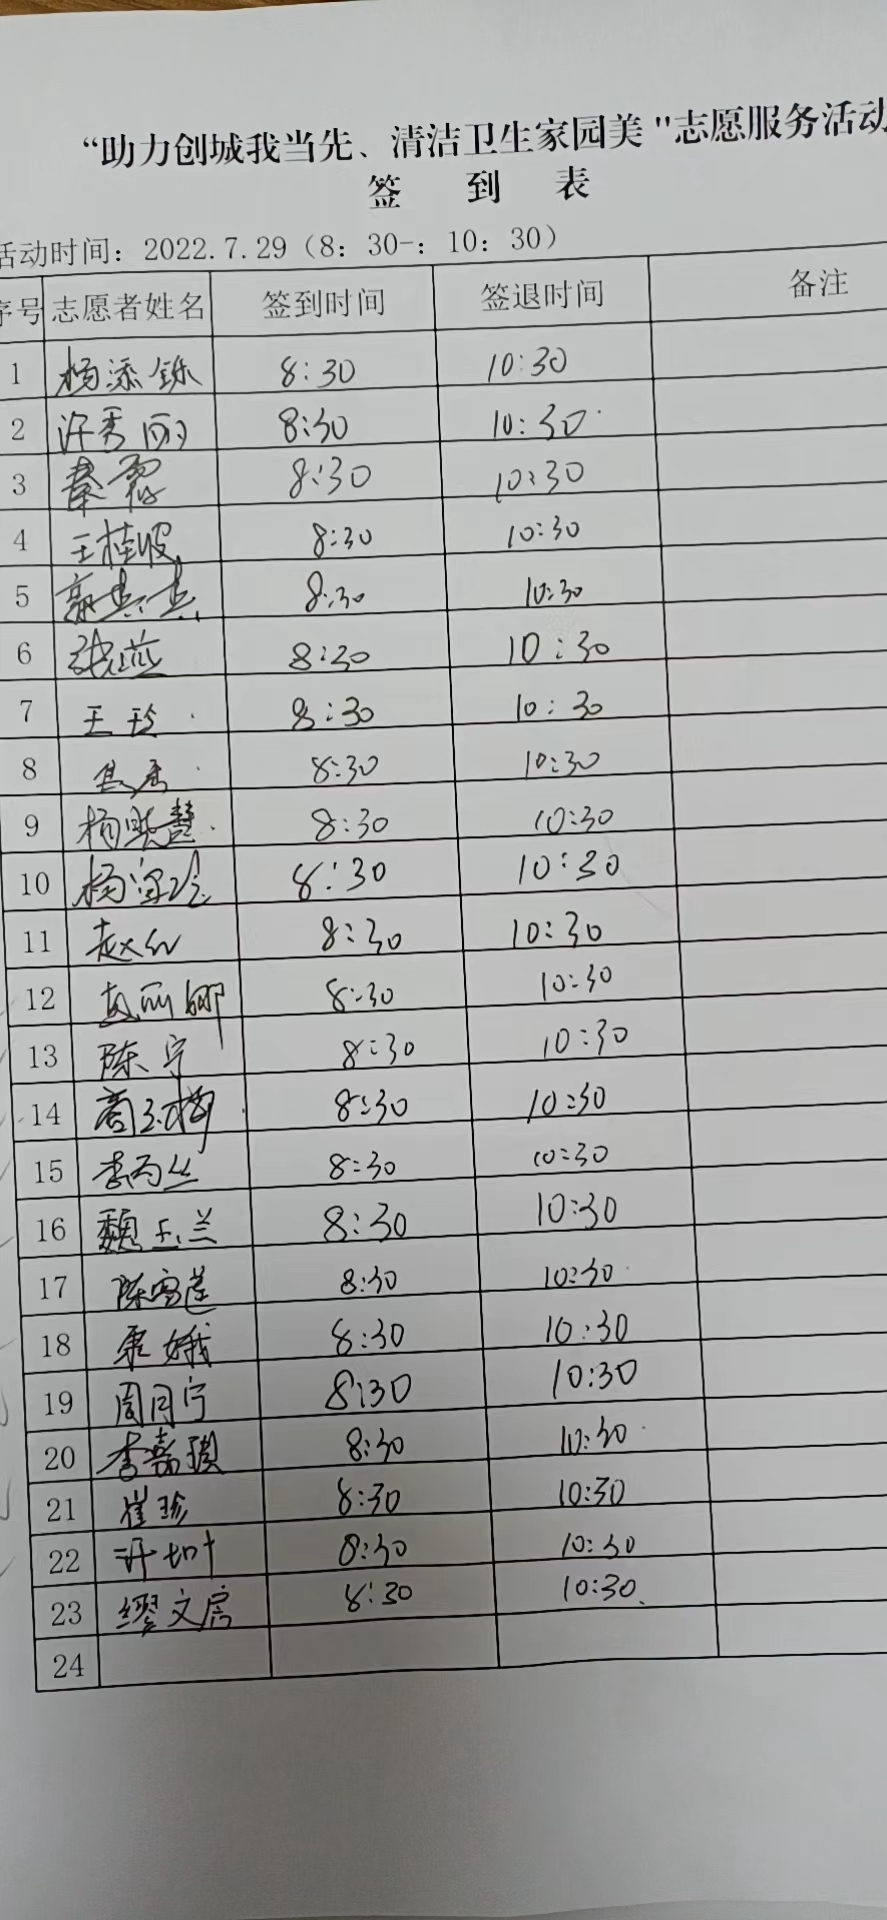 “助力创城我当先、清洁卫生家园美"志愿服务活动
签 到 表
活动时间：2022.7.29（8：30-：10：30）
序号 志愿者姓名 签到时间 签退时间 备注
1 杨添铄 8:30 10:30
2 许秀丽 8:30 10:30
3 秦霞 8:30 10:30
4 王桂 8:30 10:30
5 郭 8:30 10:30
6 张燕 8:30 10:30
7 王玲 8:30 10:30
8 8:30 10:30
9 杨晓慧 8:30 10:30
10 杨 8:30 10:30
11 赵红 8:30 10:30
12 赵丽娜 8:30 10:30
13 陈宁 8:30 10:30
14 商玉梅 8:30 10:30
15 李丙丝 8:30 10:30
16 魏玉兰 8:30 10:30
17 陈雪莲 8:30 10:30
18 娥 8:30 10:30
19 周月宁 8:30 10:30
20 李嘉琪 8:30 10:30
21 崔珍 8:30 10:30
22 8:30 10:30
23 缪文 8:30 10:30
24